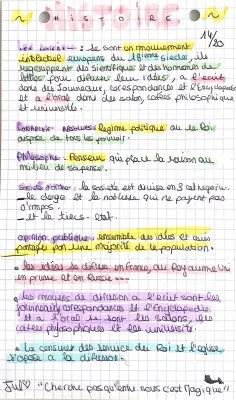 HISTOIRE
14/20
Les lumières : se sont un mouvement
intellectuel européens du 18ième siecle, ils
regroupent des scientifiques et des hommes de
lettres pour diffuser leur idées, a l'ecrit
dans des Journeaux, corespondances et l'Encyclopedie
et a l'oral dans des salon, cafés philosophique
et universités.
Monarchie absolue: Regime politique ou le Roi
dispose de tous les pouvoir.
Philosophe: Penseur qui place la raison au
milieu de sa pensée.
Société d'ordre: la societé est divisée en 3 categorie.
_ le clergé et la noblesse qui ne payent pas
d'impôs.
_ et le tiers-état.
opinion publique: ensemble des idées et avis
partagés par une majorité de la population.
• les idées se diffus en France, au Royaume uni
en prusse et en Russie
• les moyens de difusion a l'ecrit sont les
journeaux, corespondances et l'Encyclopedie
et a l'oral se sont les salons, les
cafés phylosophiques et les université.
• la censure des service du Roi et l'église
s'opose a la difusion.
"Cherche pas qu'entre nous c'est Magique"